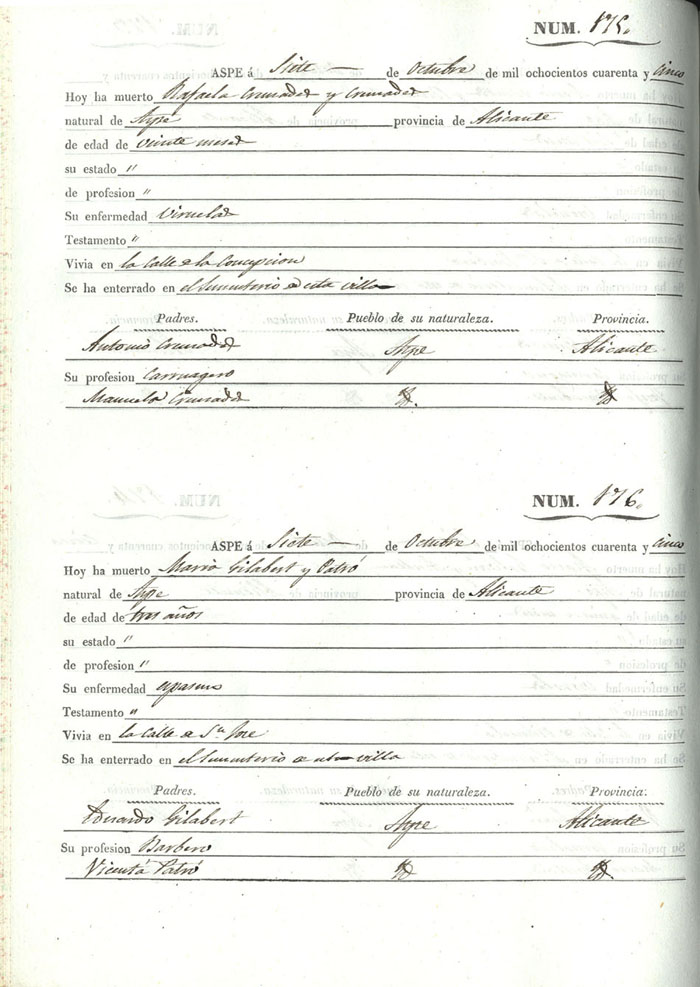 NUM. 175.
ASPE á Siete — de Octubre de mil ochocientos cuarenta y cinco
Hoy ha muerto Rafaela Cremades y Cremades
natural de Aspe provincia de Alicante
de edad de veinte meses
su estado "
de profesion "
Su enfermedad Viruelas
Testamento "
Vivia en la Calle de la Concepcion
Se ha enterrado en el Sementerio de esta villa
Padres. Pueblo de su naturaleza. Provincia.
Antonio Cremades Aspe Alicante
Su profesion Carruagero
Manuela Cremades
NUM. 176.
ASPE á Siete — de Octubre de mil ochocientos cuarenta y cinco
Hoy ha muerto Maria Gilabert y Patró
natural de Aspe provincia de Alicante
de edad de tres años
su estado "
de profesion "
Su enfermedad
Testamento "
Vivia en la Calle de Sn Jose
Se ha enterrado en el Sementerio de esta villa
Padres. Pueblo de su naturaleza. Provincia.
Eduardo Gilabert Aspe Alicante
Su profesion Barbero
Vicenta Patró